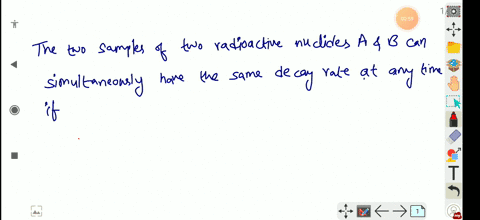 The two samples of two radioactive nuclides A & B can
simultaneously have the same decay rate at any time
if